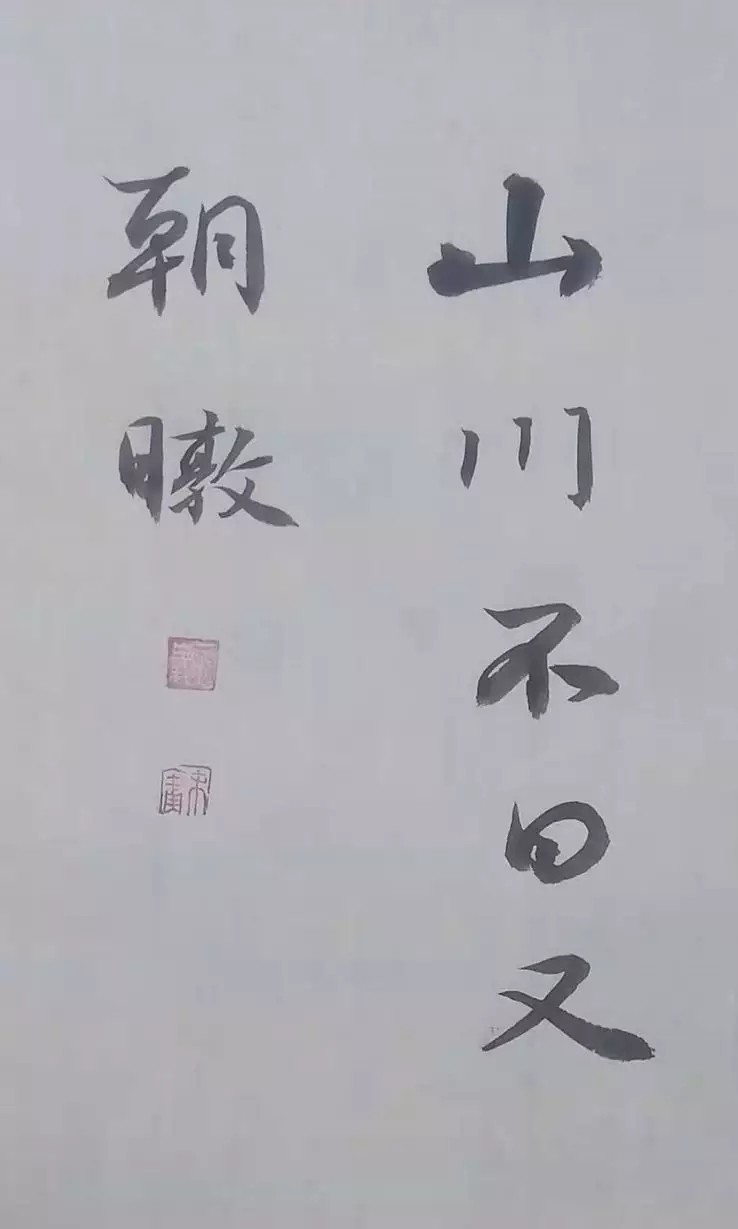 山川不曰又
朝暾